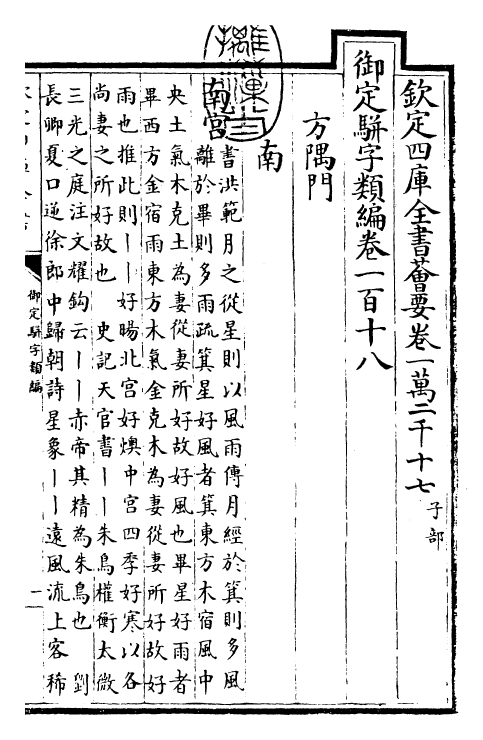 欽定四庫全書薈要卷一萬二千十七 子部
御定駢字類編卷一百十八
方隅門
南
南宮
書洪範月之從星則以風雨傳月經於箕則多風
離於畢則多雨疏箕星好風者箕東方木宿風中
央土氣木克土為妻從妻所好故好風也畢星好雨者
畢西方金宿雨東方木氣金克木為妻從妻所好故好
雨也推此則丨丨好暘北宮好燠中宮四季好寒以各
尚妻之所好故也 史記天官書丨丨朱鳥權衡太微
三光之庭注文耀鉤云丨丨赤帝其精為朱鳥也 劉
長卿夏口送徐郎中歸朝詩星象丨丨遠風流上客稀
御定駢字類編
一